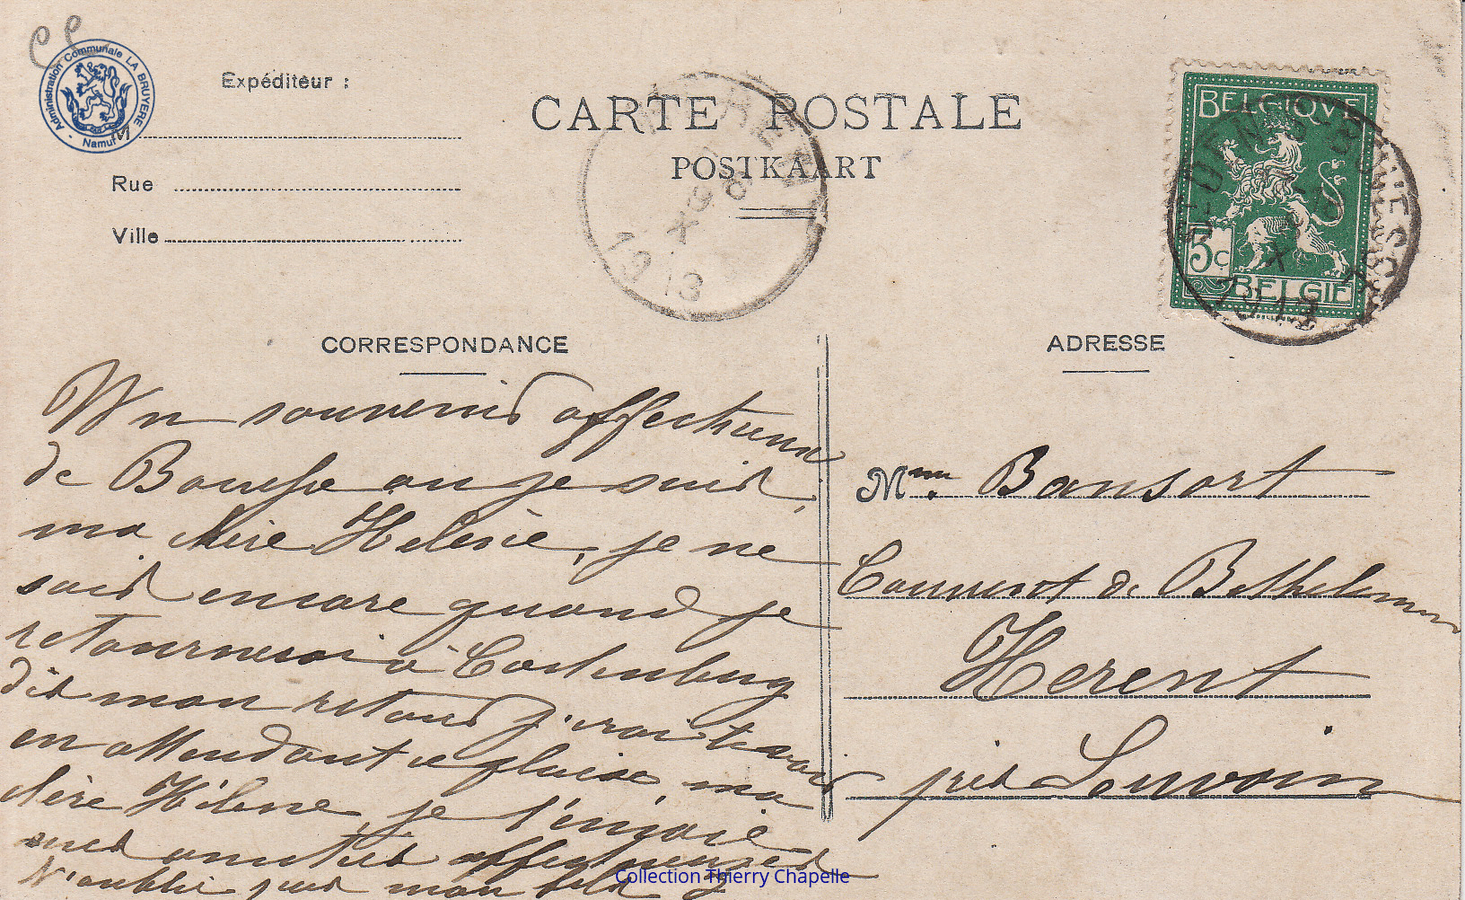 Administration Communale LA BRUYERE
Namur
Expéditeur :
M
Rue
Ville
CARTE POSTALE
POSTKAART
8
X
1913
BELGIQVE
5c
BELGIE
ST DENIS-BOVESSE
X
1913
CORRESPONDANCE
ADRESSE
Un souvenir affectueux
de Bouesse ou je suis,
ma chère Hélène, je ne
sais encore quand je
retournerai à Cortenberg
dès mon retour j'irai te voir
en attendant ce plaisir, ma
chère Hélène, je t'envoie
mes amitiés affectueuses
N'oublie pas mon
Mme. Bansort
Couvent de Bethleem
Herent
près Louvain
Collection Thierry Chapelle